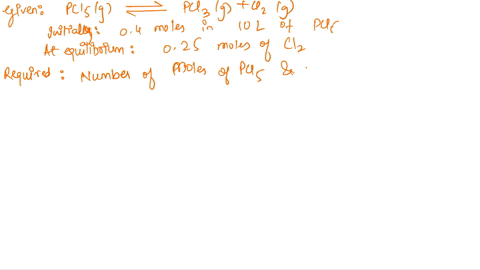 Given: PCl5(g) ⇌ PCl3(g) + Cl2(g)
Initially: 0.4 moles in 10L of PCl5
At equilibrium: 0.25 moles of Cl2
Required: Number of moles of PCl5 &